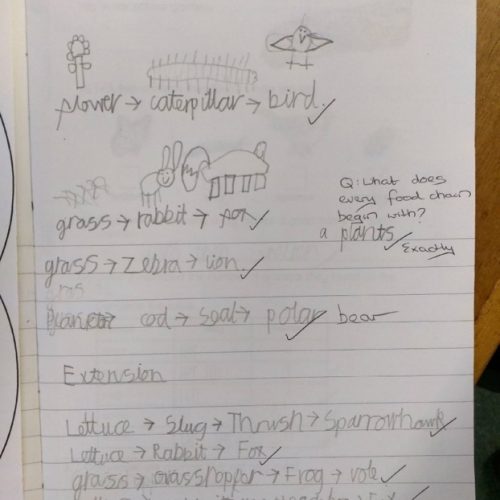 flower → caterpillar → bird.
grass → rabbit → fox
Q: What does
every food chain
begin with?
a plants
Exactly
grass → zebra → lion.
cod → seal → polar bear
Extension
Lettuce → Slug → Thrush → Sparrowhawk
Lettuce → Rabbit → Fox
grass → Grasshopper → Frog → vole